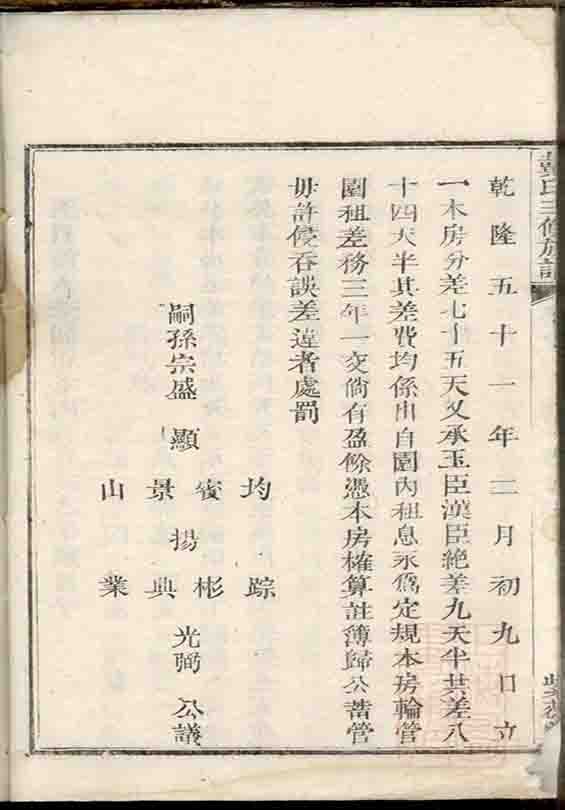 氏三修族譜
乾隆五十一年二月初九日立
一本房分差七十五天又承玉臣漢臣絕差九天半共差八
十四天半其差費均係由自園內租息永爲定規本房輪管
園租差務三年一交倘有盈餘憑本房榷算註簿歸公蓄管
毋許侵吞誤差違者處罰
均 踪
賓 彬
嗣孫宗盛 顯 揚 光弼 公議
景 典
山 業